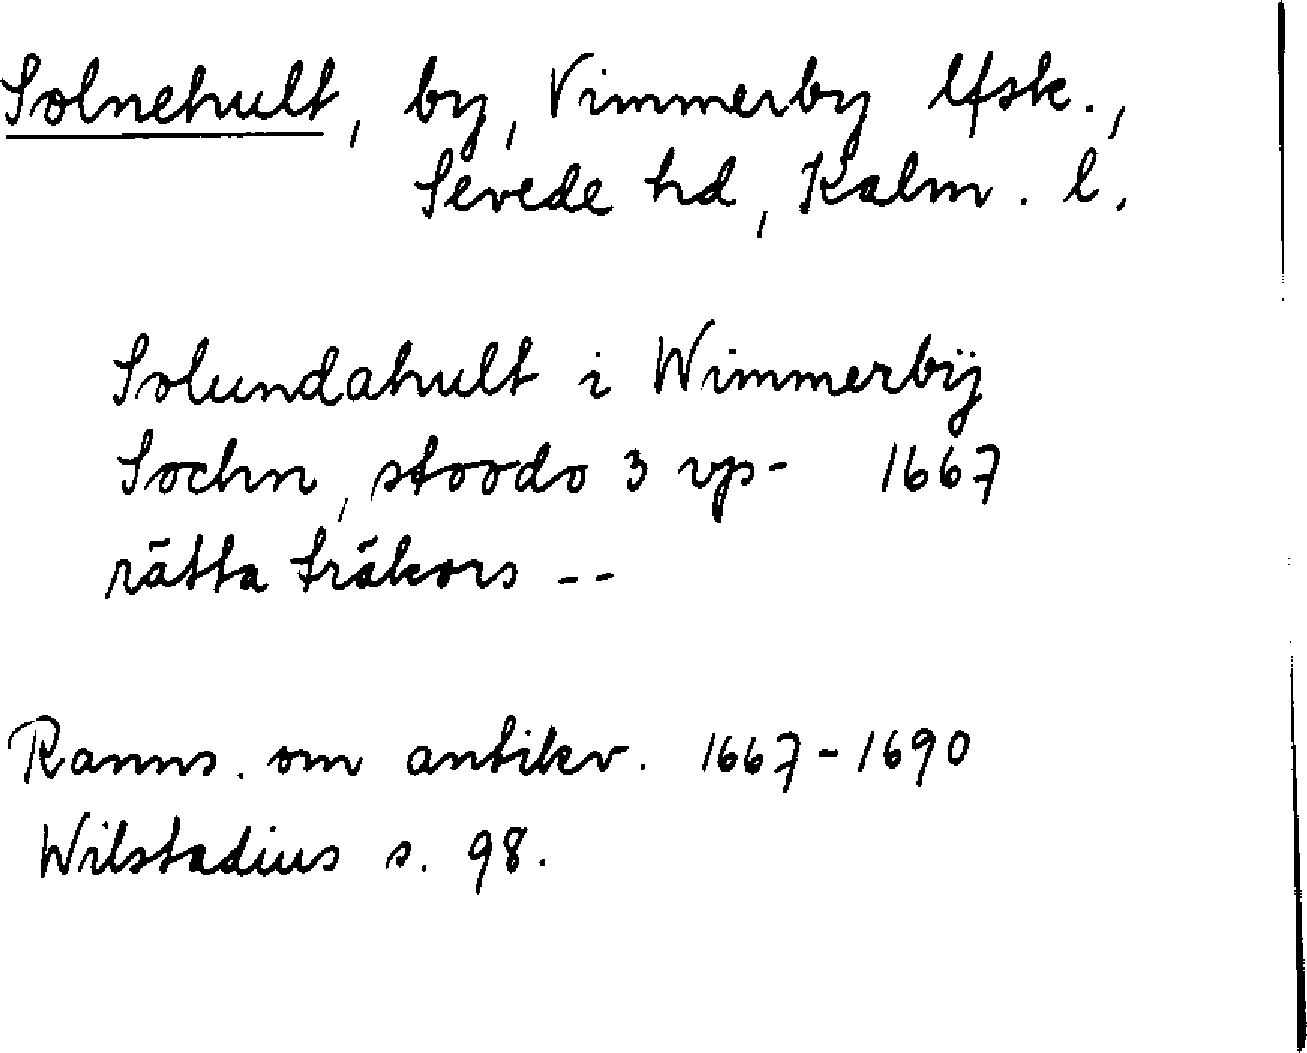 Solnehult, by, Vimmerby lfsk.,
Sevede hd, Kalm. l.
Solundahult i Wimmerbÿ
Sochn, stoodo 3 vp- 1667
rätta träkors --
Ranns. om antikv. 1667-1690
Wilstadius s. 98.